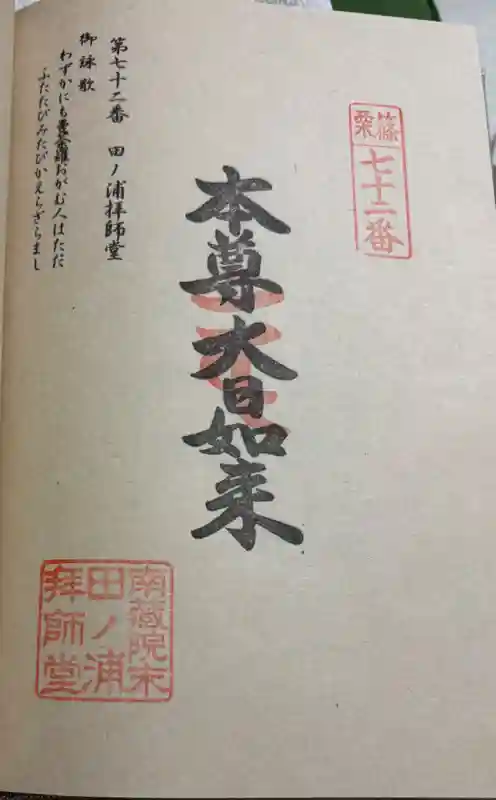 篠栗
七十二番
本尊大日如来
第七十二番 田ノ浦拝師堂
御詠歌
わずかにも曼荼羅おがむ人はただ
ふたたびみたびかえらざらまし
南蔵院末
田ノ浦
拝師堂